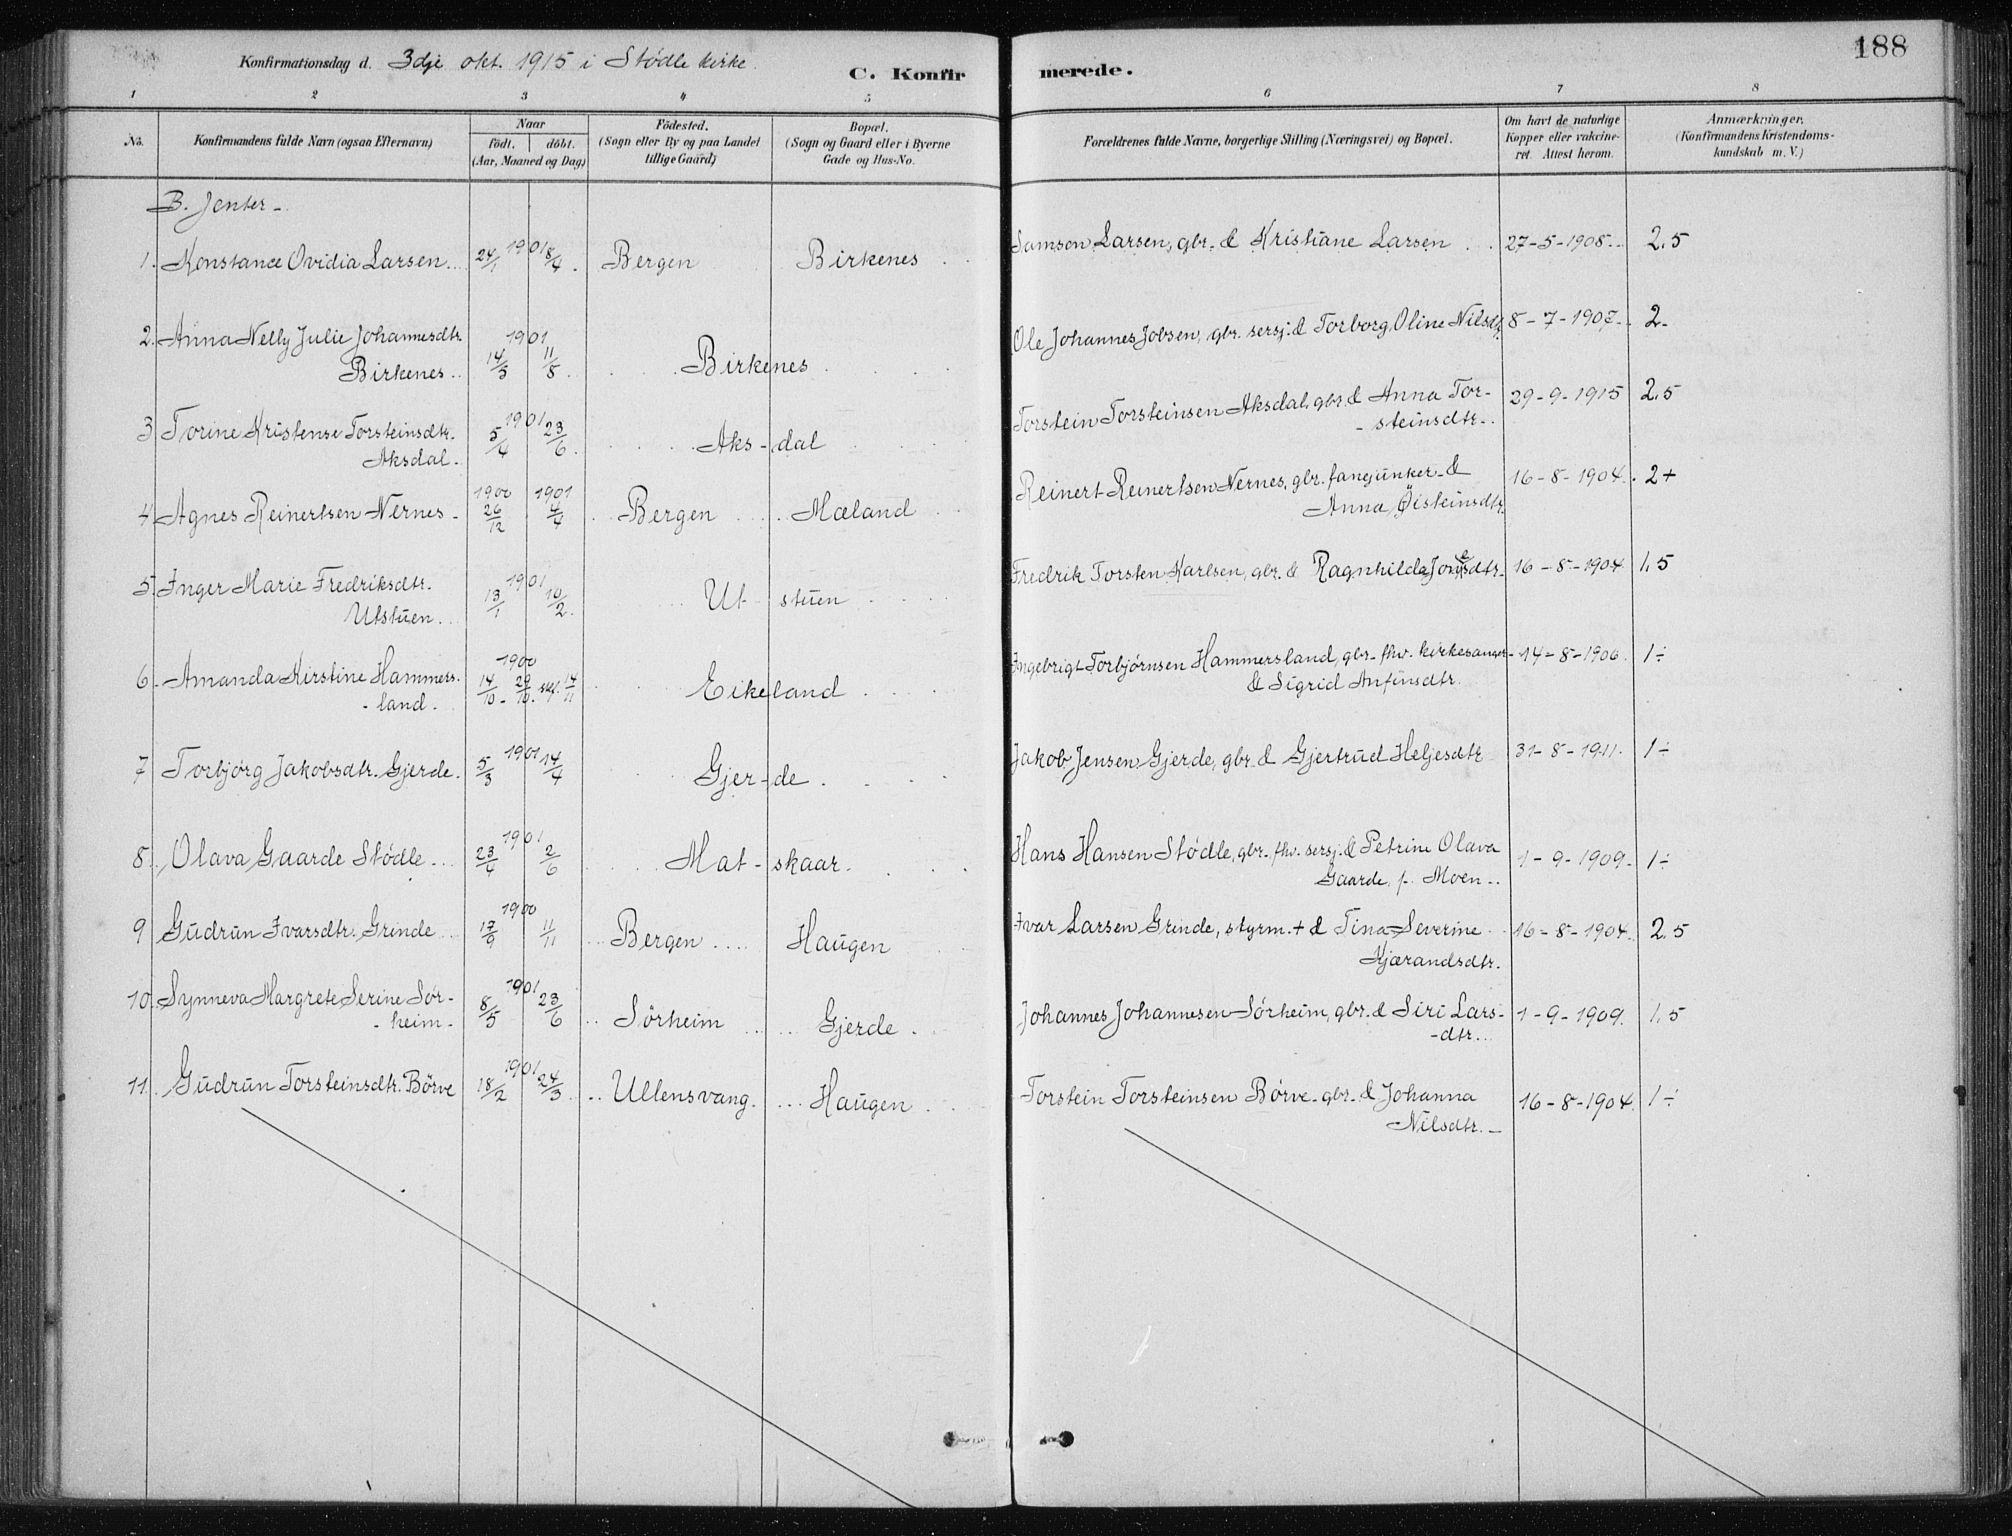 188
Konfirmationsdag d. 3dje okt. 1915 i Stødle kirke.
C. Konfirmerede.
1 2 3 4 5 6 7 8
No.
Konfirmandens fulde Navn (ogsaa Efternavn)
Naar
født. døbt.
(Aar, Maaned og Dag)
Fødested.
(Sogn eller By og paa Landet
tillige Gaard)
Bopæl.
(Sogn og Gaard eller i Byerne
Gade og Hus-No.
Forældrenes fulde Navne, borgerlige Stilling (Næringsvei) og Bopæl.
Om havt de naturlige
Kopper eller vakcine-
ret. Attest herom.
Anmærkninger.
(Konfirmandens Kristendoms-
kundskab m. V.)
B. Jenter -
1. Konstance Ovidia Larsen 24/1 1901 8/4 Bergen Birkenes Samson Larsen, gbr. & Kristiane Larsen 27-5-1908 2.5
2. Anna Nelly Julie Johannesdtr. 1901 Ole Johannes Jobsen, gbr. sersj. & Torborg Oline Nilsdtr. 8-7-1907 2-
Birkenes 14/5 11/8 Birkenes
3 Torine Kristense Torsteinsdtr. 5/4 1901 23/6 Aks-dal Torstein Torsteinsen Aksdal, gbr. & Anna Tor- 29-9-1915 2.5
Aksdal. - steinsdtr.
4 Agnes Reinertsen Nernes 1900 26/12 1901 4/4 Bergen Mæland Reinert Reinertsen Nernes, gbr. fanejunker & 16-8-1904. 2+
Anna Øisteinsdtr.
5. Inger Marie Fredriksdtr. 1901 Fredrik Torsten Karlsen, gbr. & Ragnhilda Jonsdtr. 16-8-1904 1.5
Utstuen 13/1 10/2 Ut-stuen
6. Amanda Kirstine Hammers- 1900 14/10 - 29/10. 14/11 Eikeland Ingebrigt Torbjørnsen Hammersland, gbr. fhv. kirkesanger 14-8-1906. 1÷
- land. & Sigrid Anfinsdtr.
7 Torbjørg Jakobsdtr. Gjerde. 5/3 1901 14/4 Gjer-de Jakob Jensen Gjerde, gbr. & Gjertrud Heljesdtr 31-8-1911. 1÷
8. Olava Gaarde Stødle 23/4 1901 2/6 Mat-skaar. Hans Hansen Stødle, gbr. fhv. sersj. & Petrine Olava 1-9-1909. 1÷
Gaarde, f. Moen
9 Gudrun Ivarsdtr. Grinde 17/9 1900 11/11 Bergen Haugen Ivar Larsen Grinde, styrm. + & Tina Severine 16-8-1904. 2.5
Kjærandsdtr.
10. Synneva Margrete Serine Sør- 8/5 1901 23/6 Sørheim Gjerde Johannes Johannesen Sørheim, gbr. & Siri Lars- 1-9-1909. 1.5
- heim - - dtr.
11. Gudrun Torsteinsdtr. Børve 18/2 1901 24/3 Ullensvang. Haugen Torstein Torsteinsen Børve - gbr. & Johanna 16-8-1904. 1÷
Nilsdtr. -